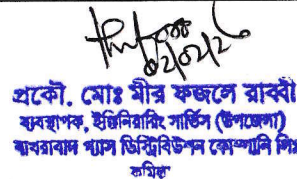 ০২/০২/২৬
প্রকৌ. মোঃ মীর ফজলে রাব্বী
ব্যবস্থাপক, ইঞ্জিনিয়ারিং সার্ভিস (উপজেলা)
বাখরাবাদ গ্যাস ডিস্ট্রিবিউশন কোম্পানি লিঃ
কুমিল্লা